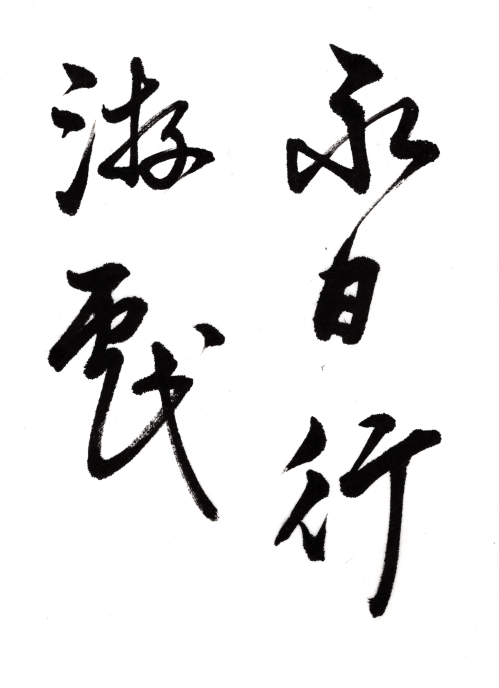 永日行
游戲